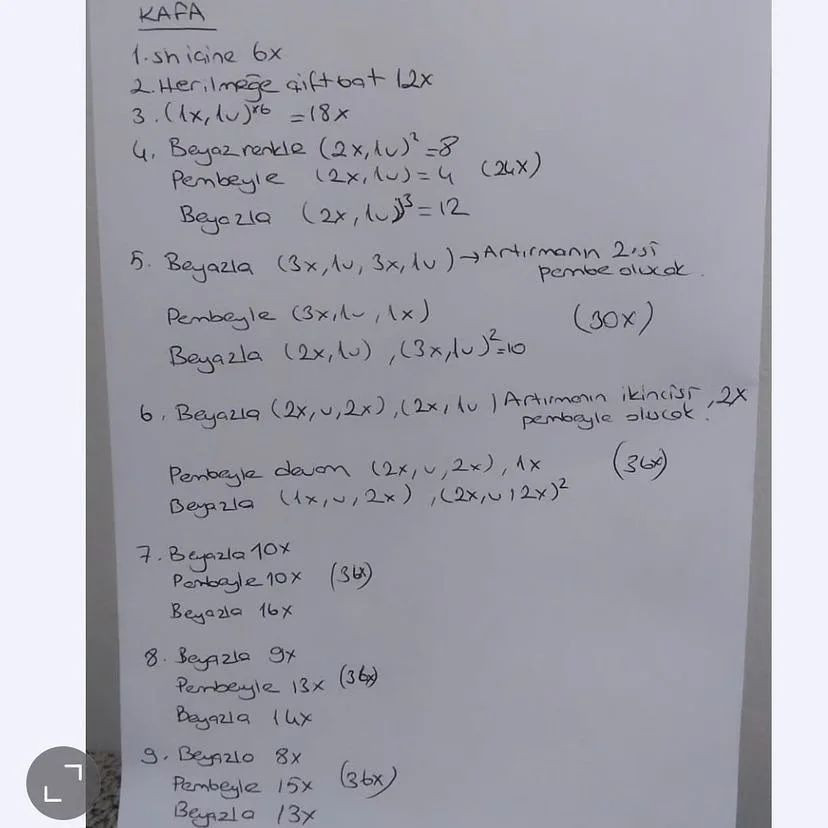 KAFA
1. Sh içine 6x
2. Her ilmeğe çift bat 12x
3. (1x, 1v)×6 = 18x
4. Beyaz renkle (2x, 1v)² = 8
Pembeyle (2x, 1v) = 4 (24x)
Beyazla (2x, 1v)³ = 12
5. Beyazla (3x, 1v, 3x, 1v) → Artırmanın 2.si
pembe olucak.
Pembeyle (3x, 1v, 1x) (30x)
Beyazla (2x, 1v), (3x, 1v)² = 10
6. Beyazla (2x, v, 2x), (2x, 1v) Artırmanın ikincisi, 2x
pembeyle olucak.
Pembeyle devam (2x, v, 2x), 1x (36x)
Beyazla (1x, v, 2x), (2x, v, 2x)²
7. Beyazla 10x
Pembeyle 10x (36x)
Beyazla 16x
8. Beyazla 9x
Pembeyle 13x (36x)
Beyazla 14x
9. Beyazla 8x
Pembeyle 15x (36x)
Beyazla 13x